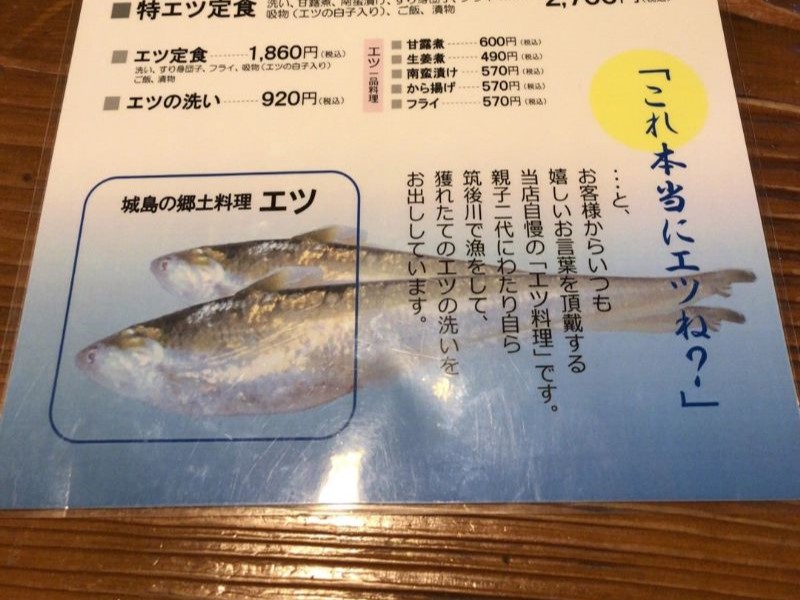 特エツ定食
吸物（エツの白子入り）、ご飯、漬物
エツ定食 1,860円（税込）
洗い、すり身団子、フライ、吸物（エツの白子入り）
ご飯、漬物
エツの洗い 920円（税込）
エツ一品料理
甘露煮 600円（税込）
生姜煮 490円（税込）
南蛮漬け 570円（税込）
から揚げ 570円（税込）
フライ 570円（税込）
「これ本当にエツね？」
…と、
お客様からいつも
嬉しいお言葉を頂戴する
当店自慢の「エツ料理」です。
親子二代にわたり自ら
筑後川で漁をして、
獲れたてのエツの洗いを
お出ししています。
城島の郷土料理 エツ